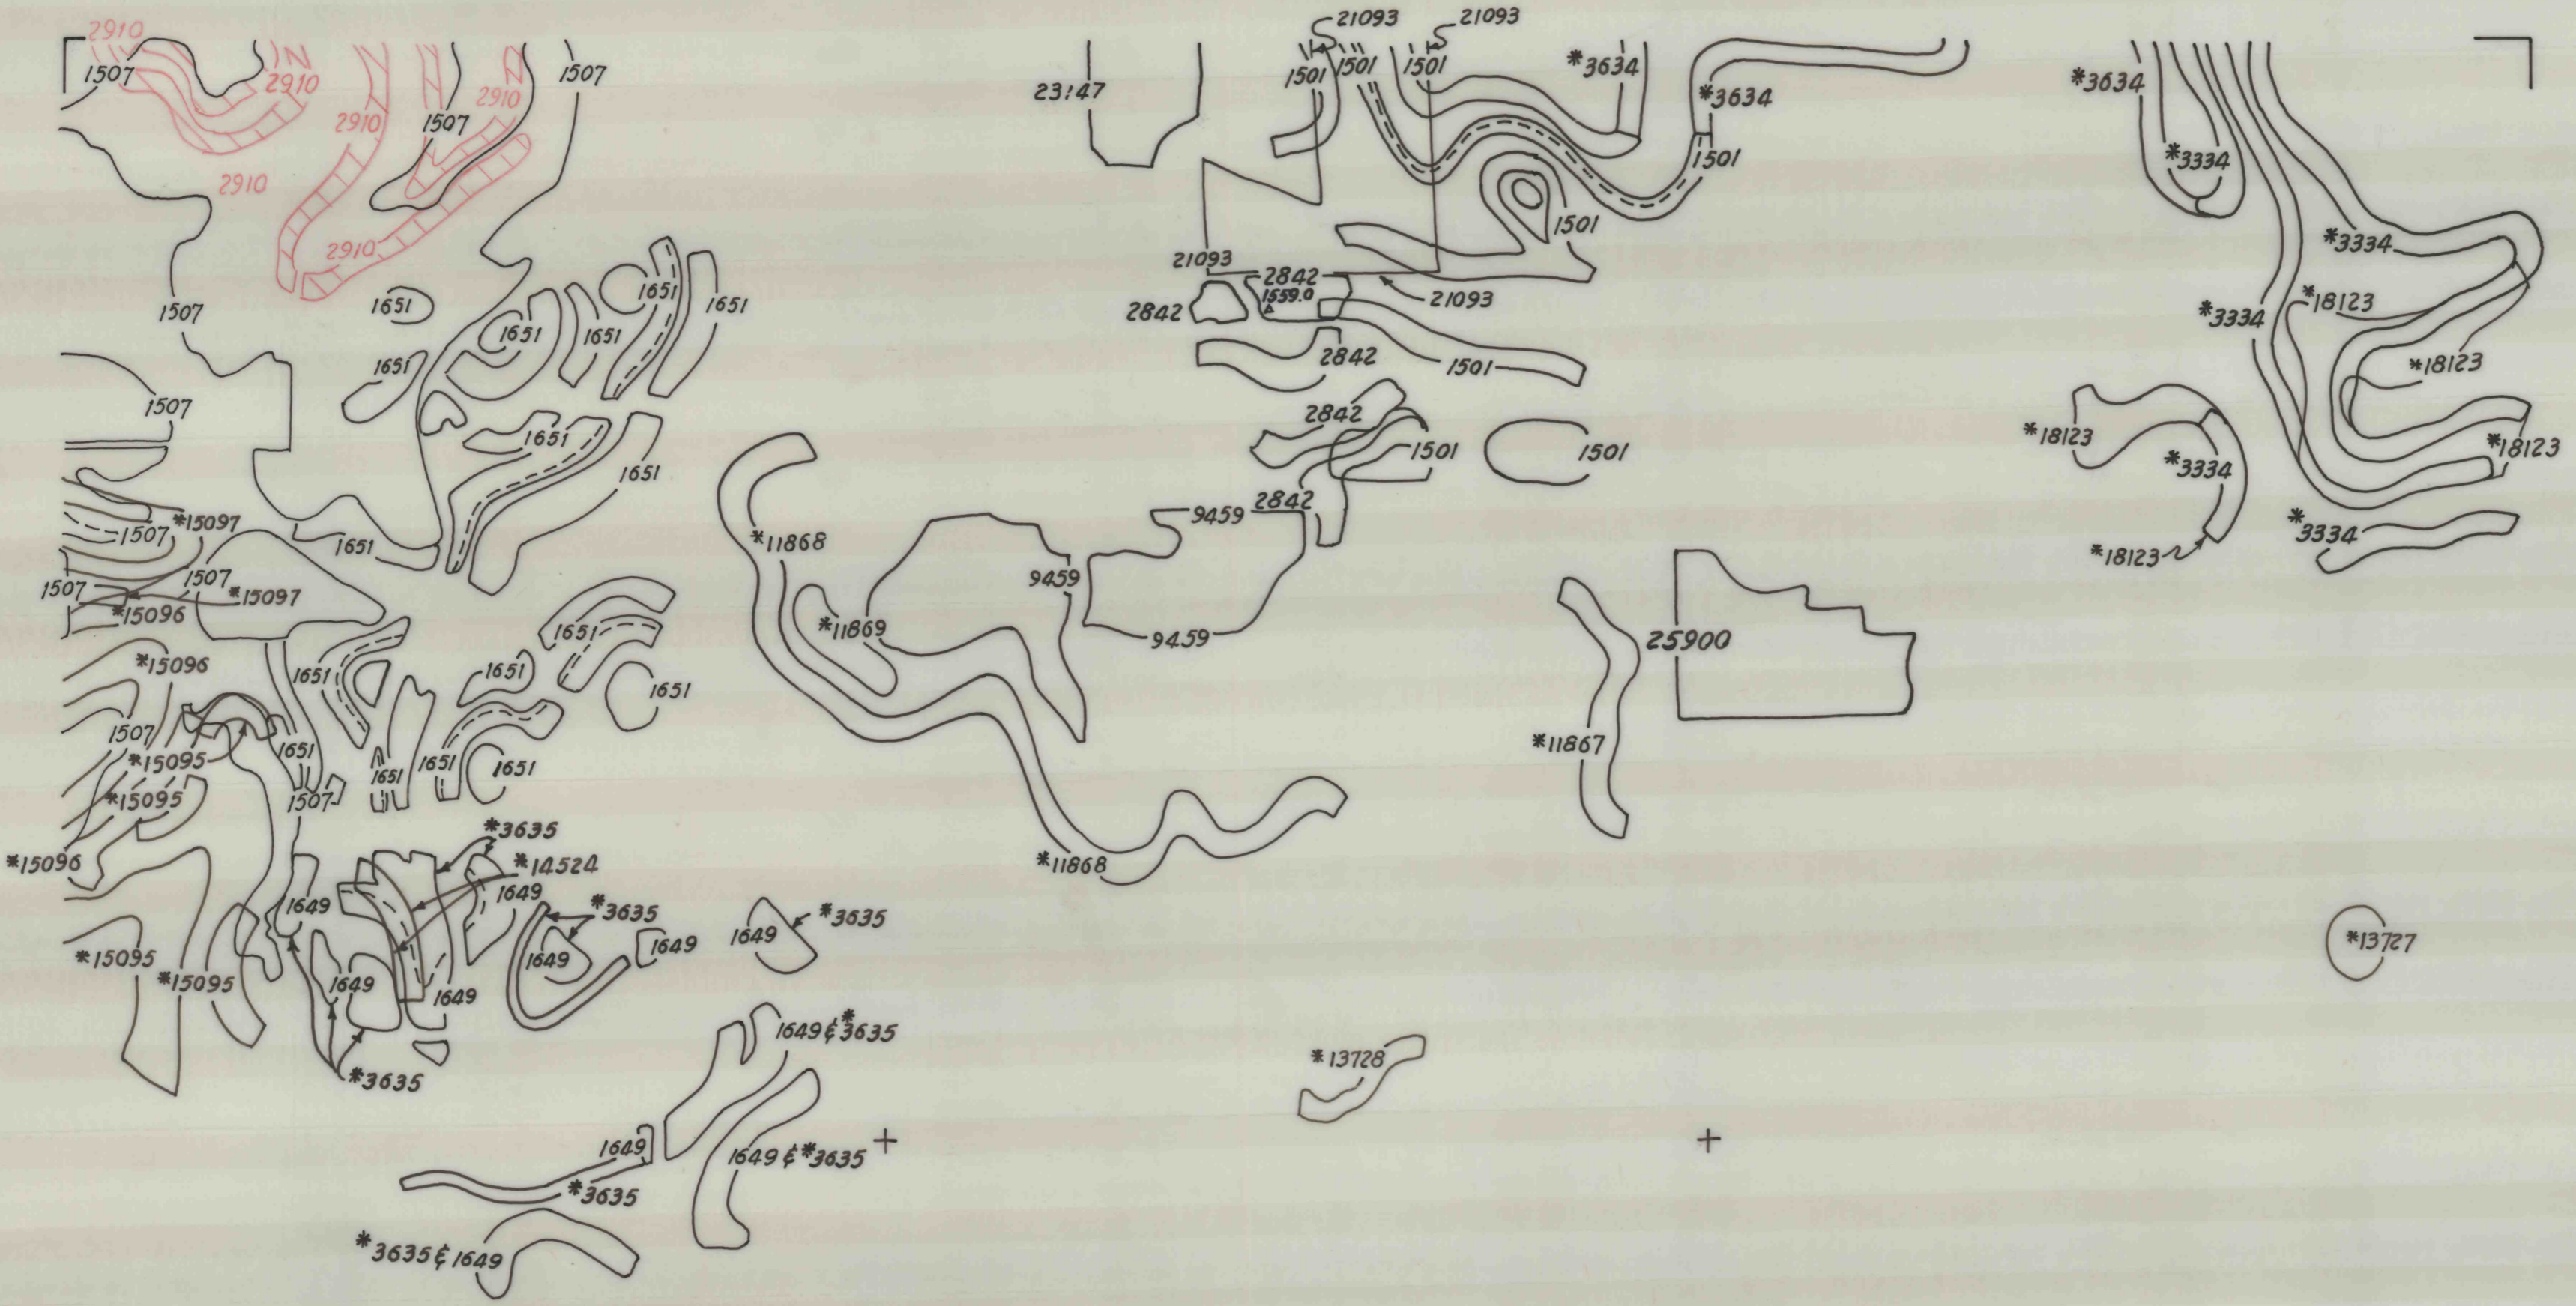 2910
1507
2910
2910
2910
1507
1507
2910
2910
1507
1651
1651
1651
1651
1651
1651
1507
1651
1651
1507
*15097
1651
1507
1507
*15097
*15096
*15096
1651
1651
1651
1651
1507
*15095
1651
1651
1651
1651
*15095
1507
*15096
*3635
*14524
1649
1649
*3635
1649
1649
1649
*3635
*15095
*15095
1649
1649
*3635
1649 & *3635
1649
1649 & *3635
*3635
*3635 & 1649
23147
21093
21093
1501
1501
1501
*3634
*3634
1501
1501
21093
2842
1559.0
21093
2842
2842
1501
2842
1501
1501
2842
9459
9459
9459
*11868
*11869
*11868
25900
*11867
*13728
*3634
*3334
*3334
*18123
*3334
*18123
*18123
*3334
*18123
*3334
*18123
*13727